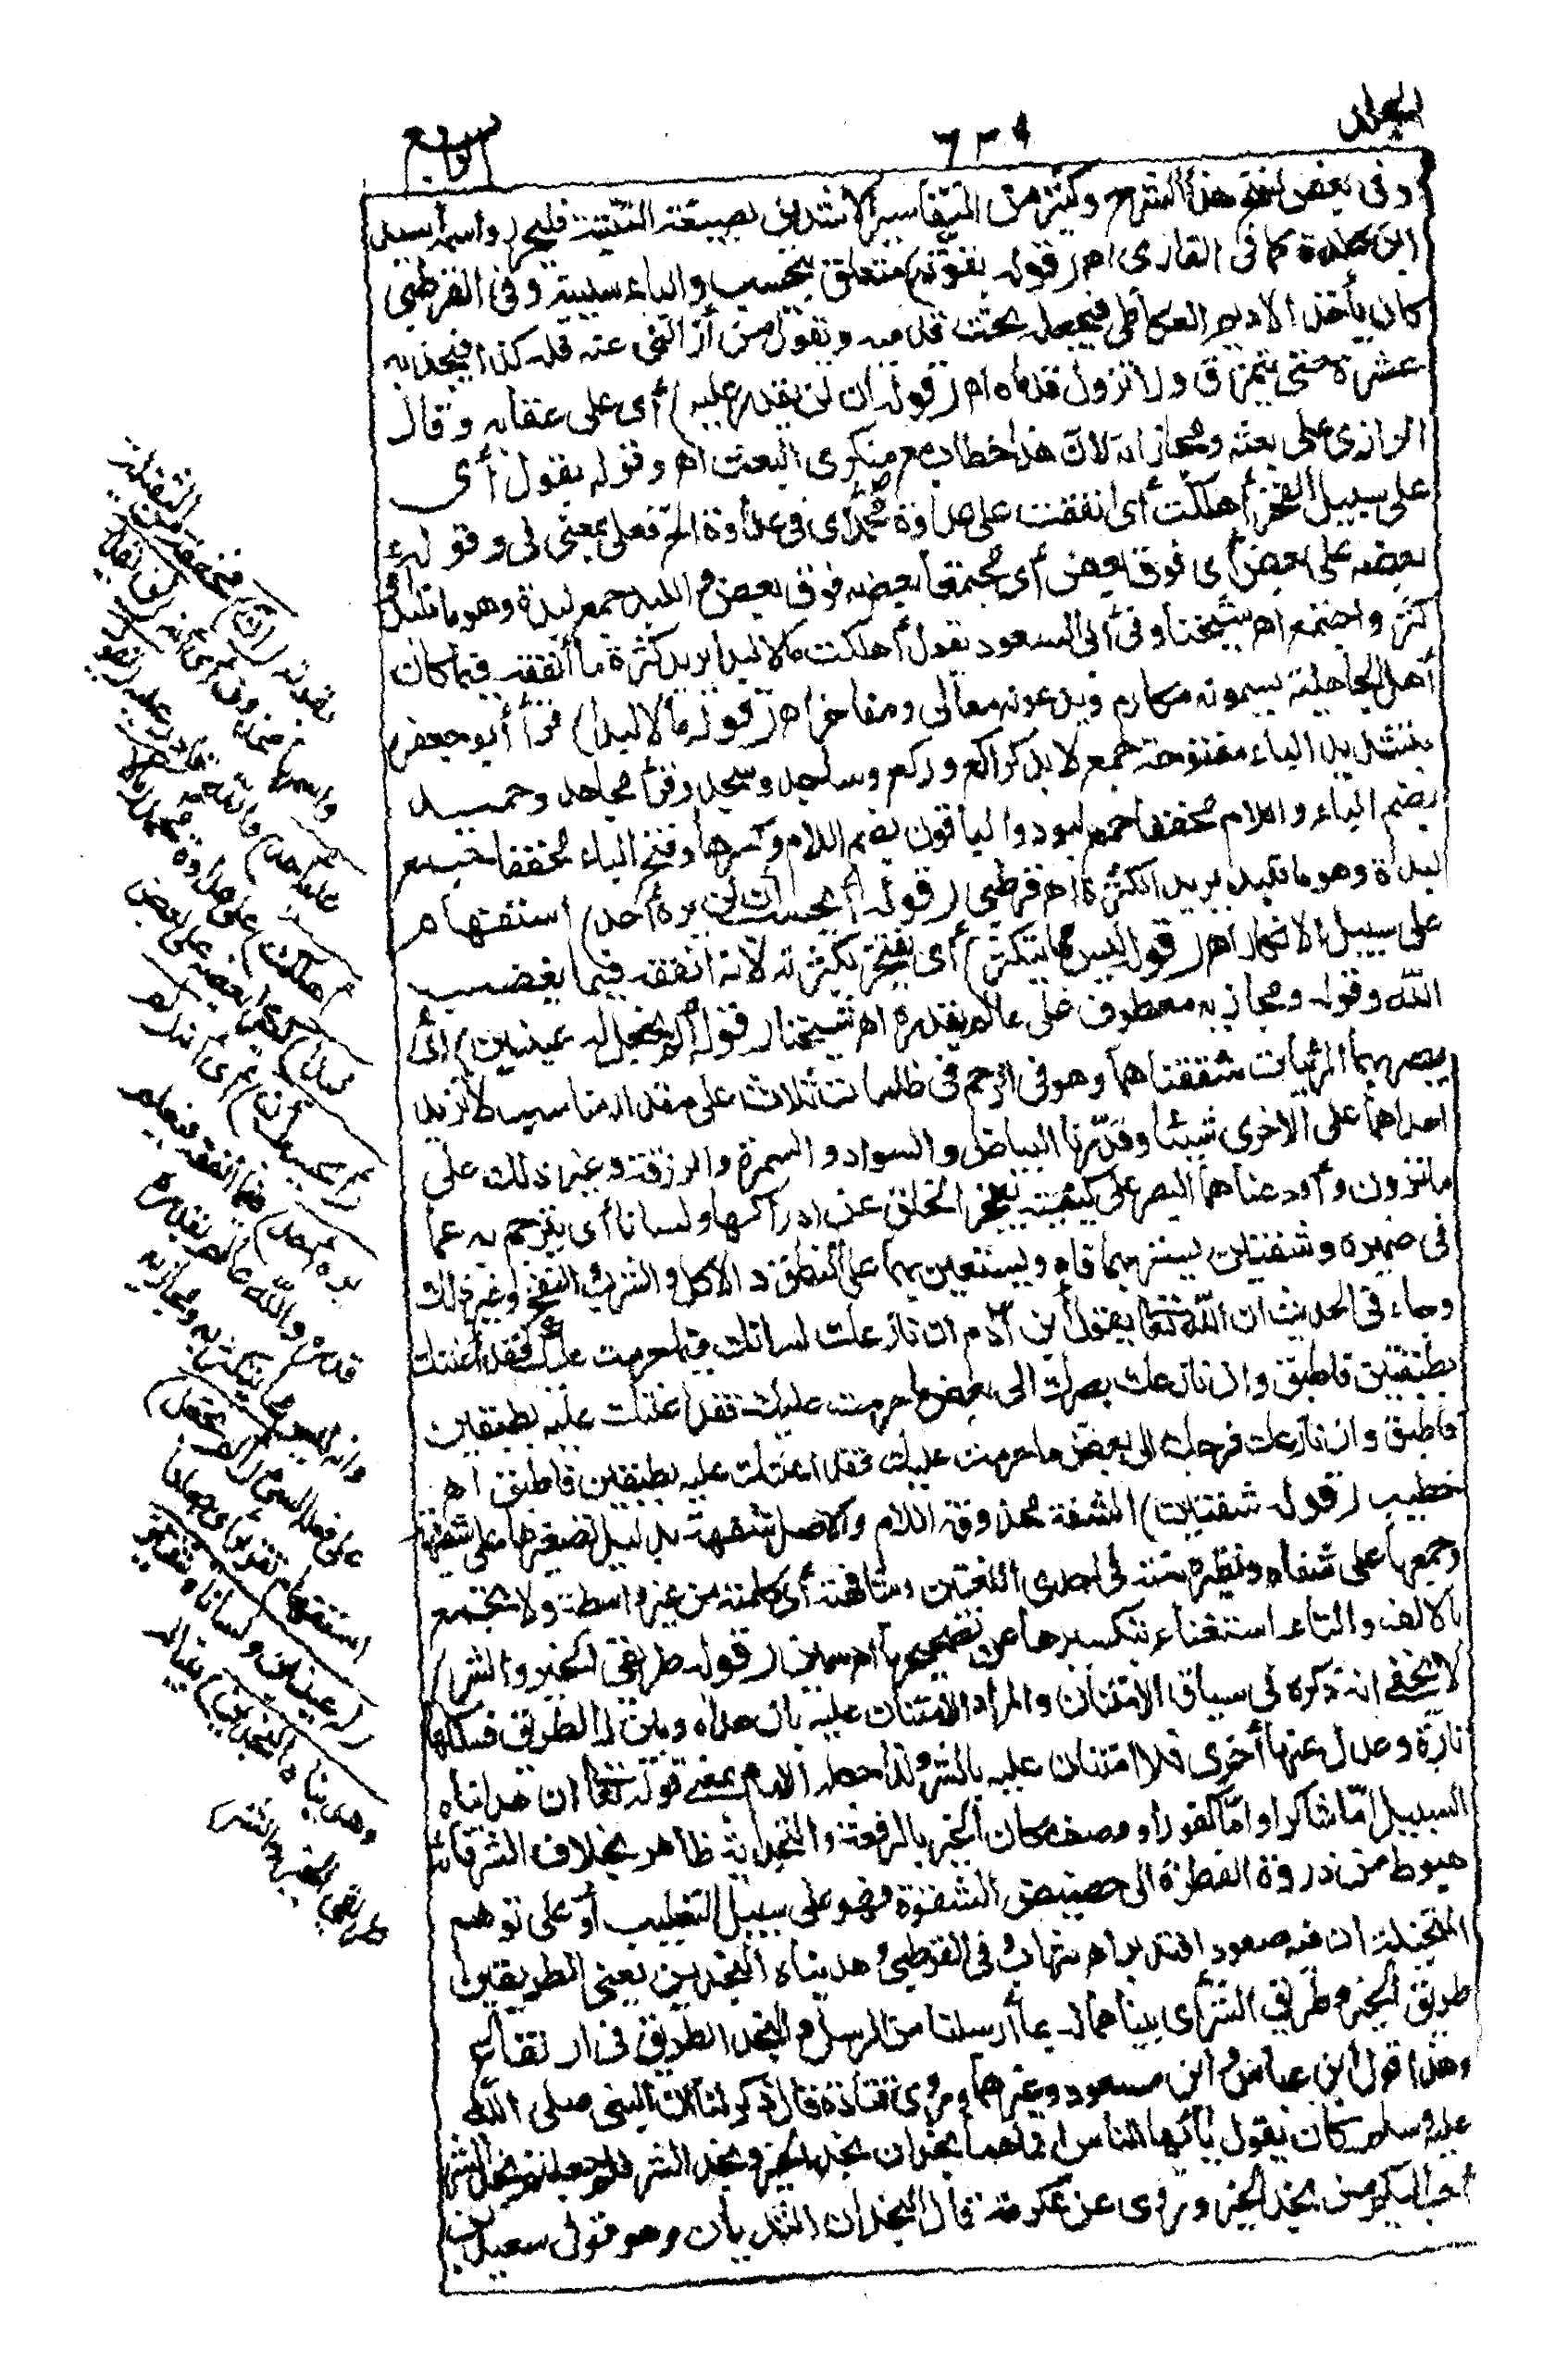 المجلد
٦٣٩
الرابع
وفي بعض نسخ هذا الشرح وكثير من التفاسير الاشدين بصيغة التثنية فليحرر واسمه أسيد
ابن كلدة كما في القاري اه (قوله بقوته) متعلق بيحسب والباء سببية وفي القرطبي
كان يأخذ الاديم العكاظي فيجعله تحت قدميه ويقول من أزالني عنه فله كذا فيجذبه
عشرة حتى يتمزق ولا تزول قدماه اه (قوله ان لن يقدر عليه) أي على عقابه وقال
الرازي على بعثه ومجازاته لان هذا خطاب مع منكري البعث اه وقوله يقول أي
على سبيل الفخر أهلكت أي انفقت على عداوة محمد أي في عداوة الخ فعلى بمعنى في وقوله
بعضه على بعض أي فوق بعض أي مجتمعا بعضه فوق بعض واللبد جمع لبدة وهو ما تلبد أي
كثر واجتمع اه شيخنا وفي أبي السعود يقول أهلكت مالا لبدا يريد كثرة ما أنفقه فيما كان
أهل الجاهلية يسمونه مكارم ويدعونه معالي ومفاخر اه (قوله مالا لبدا) قرأ أبو جعفر
بتشديد الباء مفتوحة جمع لابد كراكع وركع وساجد وسجد وقرأ مجاهد وحميد
بضم الباء واللام مخففا جمع لبود والباقون بضم اللام وكسرها وفتح الباء مخففا جمع
لبدة وهو ما تلبد يريد الكثرة اه قرطبي (قوله أيحسب أن لن يره أحد) استفهام
على سبيل الانكار اه (قوله ليس مما يتكثر) أي يفتخر بكثرته لانه انفقه فيما يغضب
الله وقوله ومجازيه معطوف على عالم بقدره اه شيخنا (قوله ألم نجعل له عينين) أي
يبصر بهما المرئيات شققناهما وهو في الرحم في ظلمات ثلاث على مقدار مناسب لا تزيد
احداهما على الاخرى شيئا وقدرنا البياض والسواد والسمرة والزرقة وغير ذلك على
ما ترون وأودعناهما البصر على كيفية يعجز الخلق عن ادراكها ولسانا أي يترجم به عما
في ضميره وشفتين يستر بهما فاه ويستعين بهما على النطق والاكل والشرب والنفخ وغير ذلك
وجاء في الحديث ان الله تعالى يقول ابن آدم ان نازعك لسانك فيما حرمت عليك فقد أعنتك
بطبقتين فاطبق وان نازعك بصرك الى بعض ما حرمت عليك فقد اعنتك عليه بطبقين
فاطبق وان نازعك فرجك الى بعض ما حرمت عليك فقد اعنتك عليه بطبقين فاطبق اه
خطيب (قوله شفتين) الشفة محذوفة اللام والاصل شفهة بدليل تصغيرها على شفيهة
وجمعها على شفاه ونظيره سنة في احدى اللغتين وشافهته أي كلمته من غير واسطة ولا تجتمع
بالالف والتاء استغناء بتكسيرها عن تصحيحها اه سمين (قوله طريقي الخير والشر)
لا يخفى انه ذكره في سياق الامتنان والمراد الامتنان عليه بان هداه وبين له الطريق فسلكها
تارة وعدل عنها أخرى فلا امتنان عليه بالشر ولذا جعله الامام بمعنى قوله تعالى ان هديناه
السبيل اما شاكرا واما كفورا ووصف مكان الخير بالرفعة والنجدية ظاهر بخلاف الشر فانه
هبوط من ذروة الفطرة الى حضيض الشقوة فهو على سبيل التغليب أو على توهم
المتخيلة ان فيه صعود افتدبر اه شهاب وفي القرطبي وهديناه النجدين يعني الطريقين
طريق الخير وطريق الشر أي بيناهما له بما أرسلنا من الرسل والنجد الطريق في ارتفاع
وهذا قول ابن عباس وابن مسعود وغيرهما وروى قتادة قال ذكر لنا أن النبي صلى الله
عليه وسلم كان يقول يا أيها الناس انما هما نجدان نجد الخير ونجد الشر فلم نجعل نجد الشر
أحب اليكم من نجد الخير وروى عن عكرمة قال النجدان الثديان وهو قول سعيد بن
بقوته (ان) مخففة من الثقيلة
واسمها محذوف أي أنه (لن يقدر
عليه أحد) والله قادر عليه (يقول
أهلكت) على عداوة محمد (مالا
لبدا) كثيرا بعضه على بعض
(أيحسب أن) أي أنه (لم
يره أحد) فيما أنفقه فيعلم
قدره والله عالم بقدره
وانه ليس مما يتكثر به ومجازيه
على فعله السيئ (ألم نجعل)
استفهام تقرير أي جعلنا
(له عينين ولسانا وشفتين
وهديناه النجدين) بينا له
طريقي الخير والشر